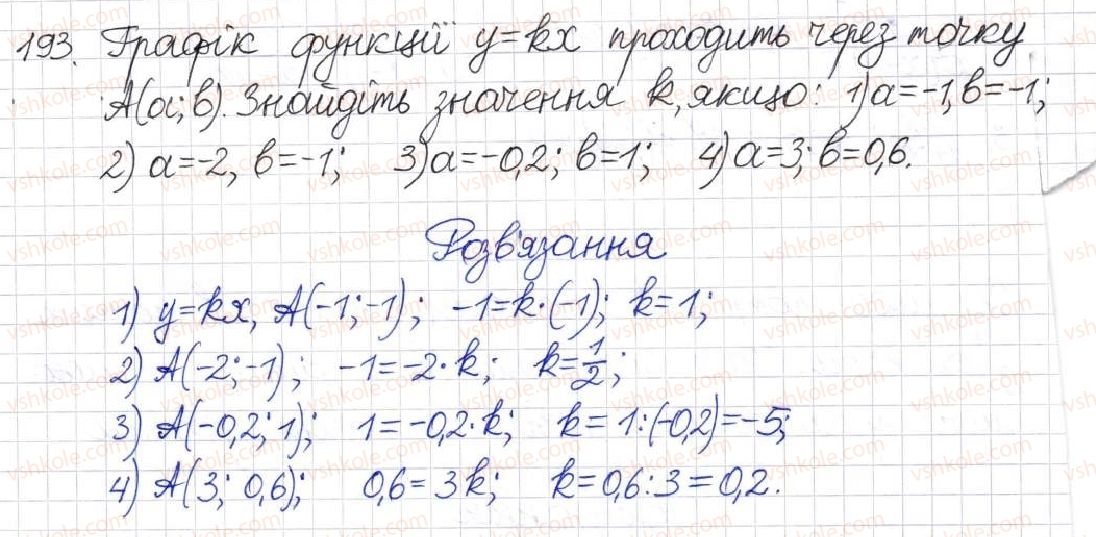 193. Графік функції y=kx проходить через точку
A(a;b). Знайдіть значення k, якщо: 1) a=-1, b=-1;
2) a=-2, b=-1; 3) a=-0,2; b=1; 4) a=3; b=0,6.
Розв'язання
1) y=kx, A(-1;-1); -1=k·(-1); k=1;
2) A(-2;-1); -1=-2·k; k=1/2;
3) A(-0,2;1); 1=-0,2·k; k=1:(-0,2)=-5;
4) A(3; 0,6); 0,6=3k; k=0,6:3=0,2.
vshkole.com